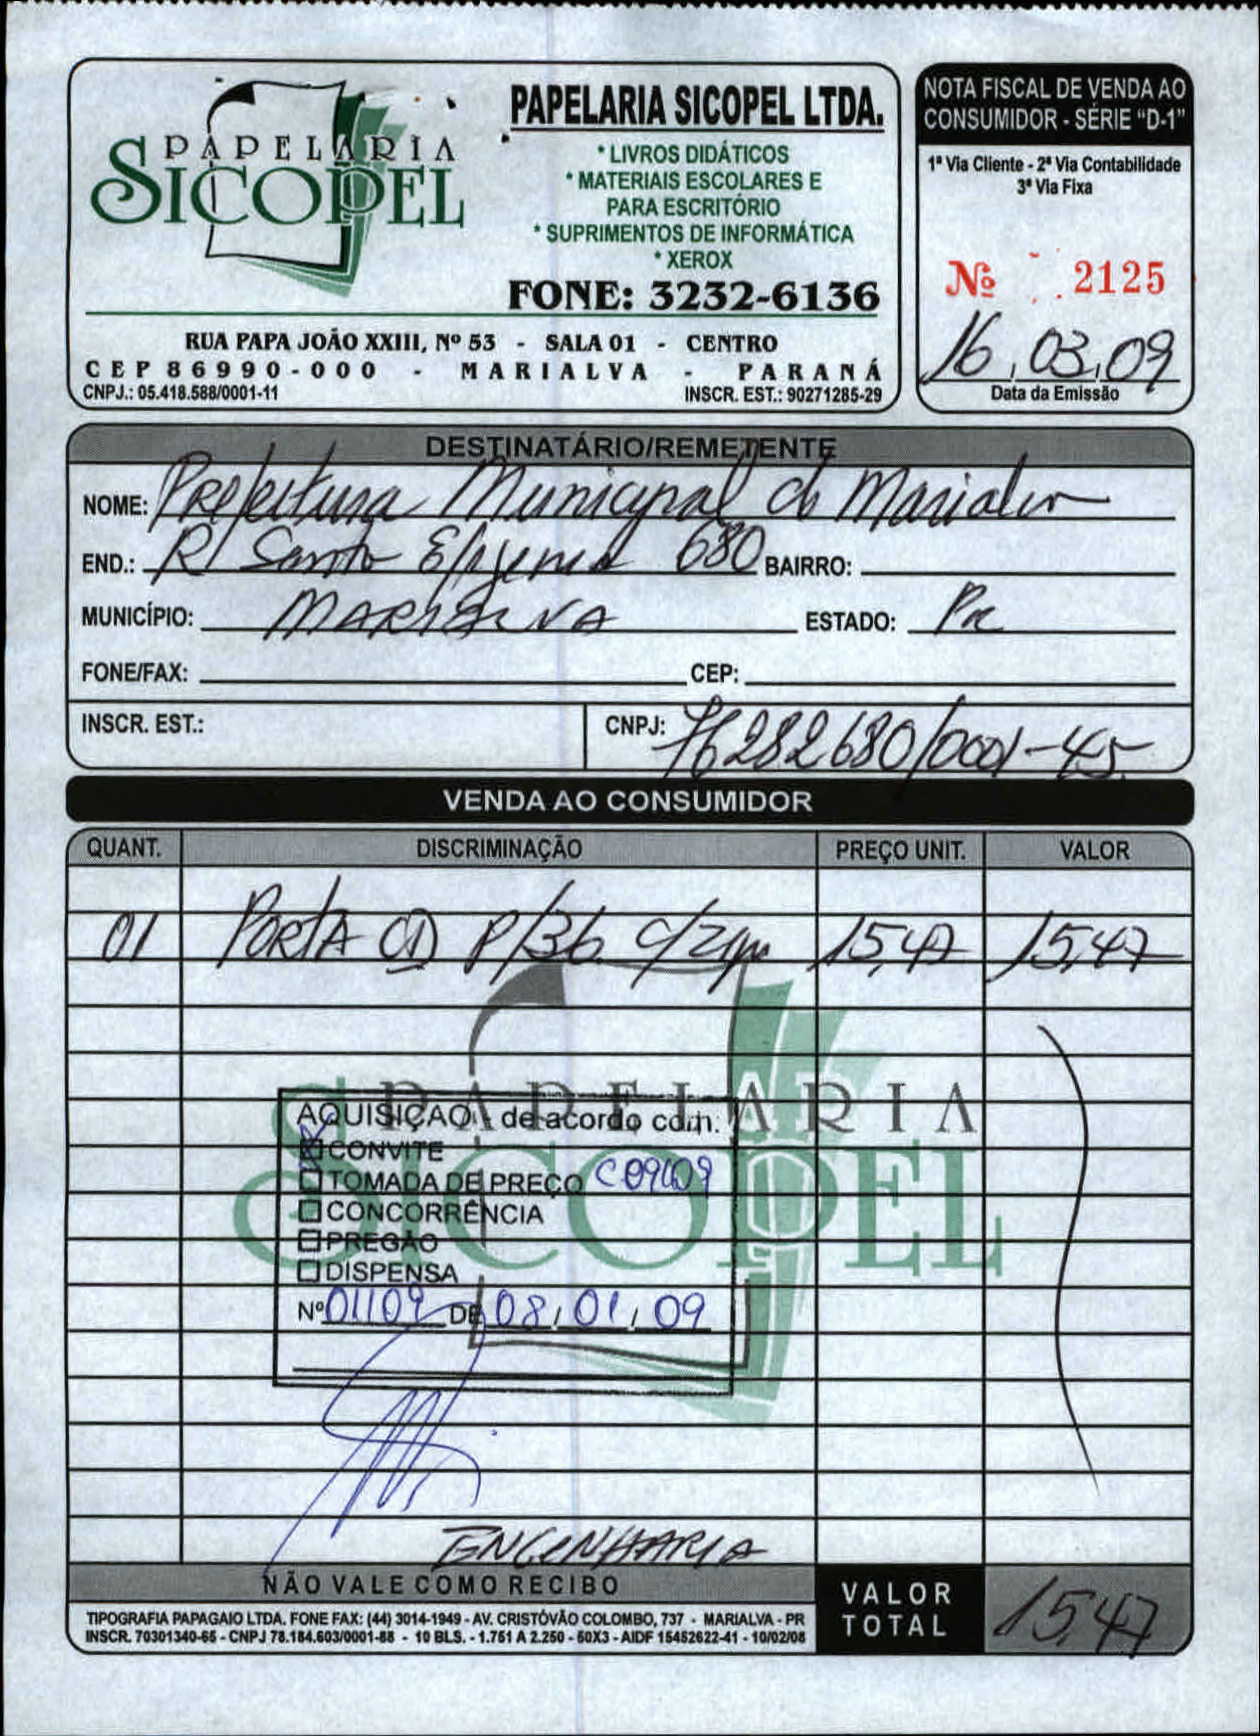 PAPELARIA
SICOPEL
PAPELARIA SICOPEL LTDA.
* LIVROS DIDÁTICOS
* MATERIAIS ESCOLARES E
PARA ESCRITÓRIO
* SUPRIMENTOS DE INFORMÁTICA
* XEROX
FONE: 3232-6136
RUA PAPA JOÃO XXIII, Nº 53 - SALA 01 - CENTRO
CEP 86990-000 - MARIALVA - PARANÁ
CNPJ.: 05.418.588/0001-11 INSCR. EST.: 90271285-29
NOTA FISCAL DE VENDA AO
CONSUMIDOR - SÉRIE “D-1”
1ª Via Cliente - 2ª Via Contabilidade
3ª Via Fixa
Nº 2125
16,03,09
Data da Emissão
DESTINATÁRIO/REMETENTE
NOME: Prefeitura Municipal de Marialva
END.: R/ Santa Efigenia 680 BAIRRO:
MUNICÍPIO: MARIALVA ESTADO: Pr
FONE/FAX: CEP:
INSCR. EST.: CNPJ: 76282680/0001-45
VENDA AO CONSUMIDOR
QUANT. DISCRIMINAÇÃO PREÇO UNIT. VALOR
01 PORTA CD P/36 c/zipe 15,47 15,47
PAPELARIA
SICOPEL
AQUISIÇAO de acordo com:
CONVITE
TOMADA DE PREÇO C0909
CONCORRÊNCIA
PREGÃO
DISPENSA
Nº 01109 DE 08/01/09
ENGENHARIA
NÃO VALE COMO RECIBO
VALOR TOTAL 15,47
TIPOGRAFIA PAPAGAIO LTDA. FONE FAX: (44) 3014-1949 - AV. CRISTÓVÃO COLOMBO, 737 - MARIALVA - PR
INSCR. 70301340-65 - CNPJ 78.184.603/0001-88 - 10 BLS. - 1.751 A 2.250 - 50X3 - AIDF 15452622-41 - 10/02/08